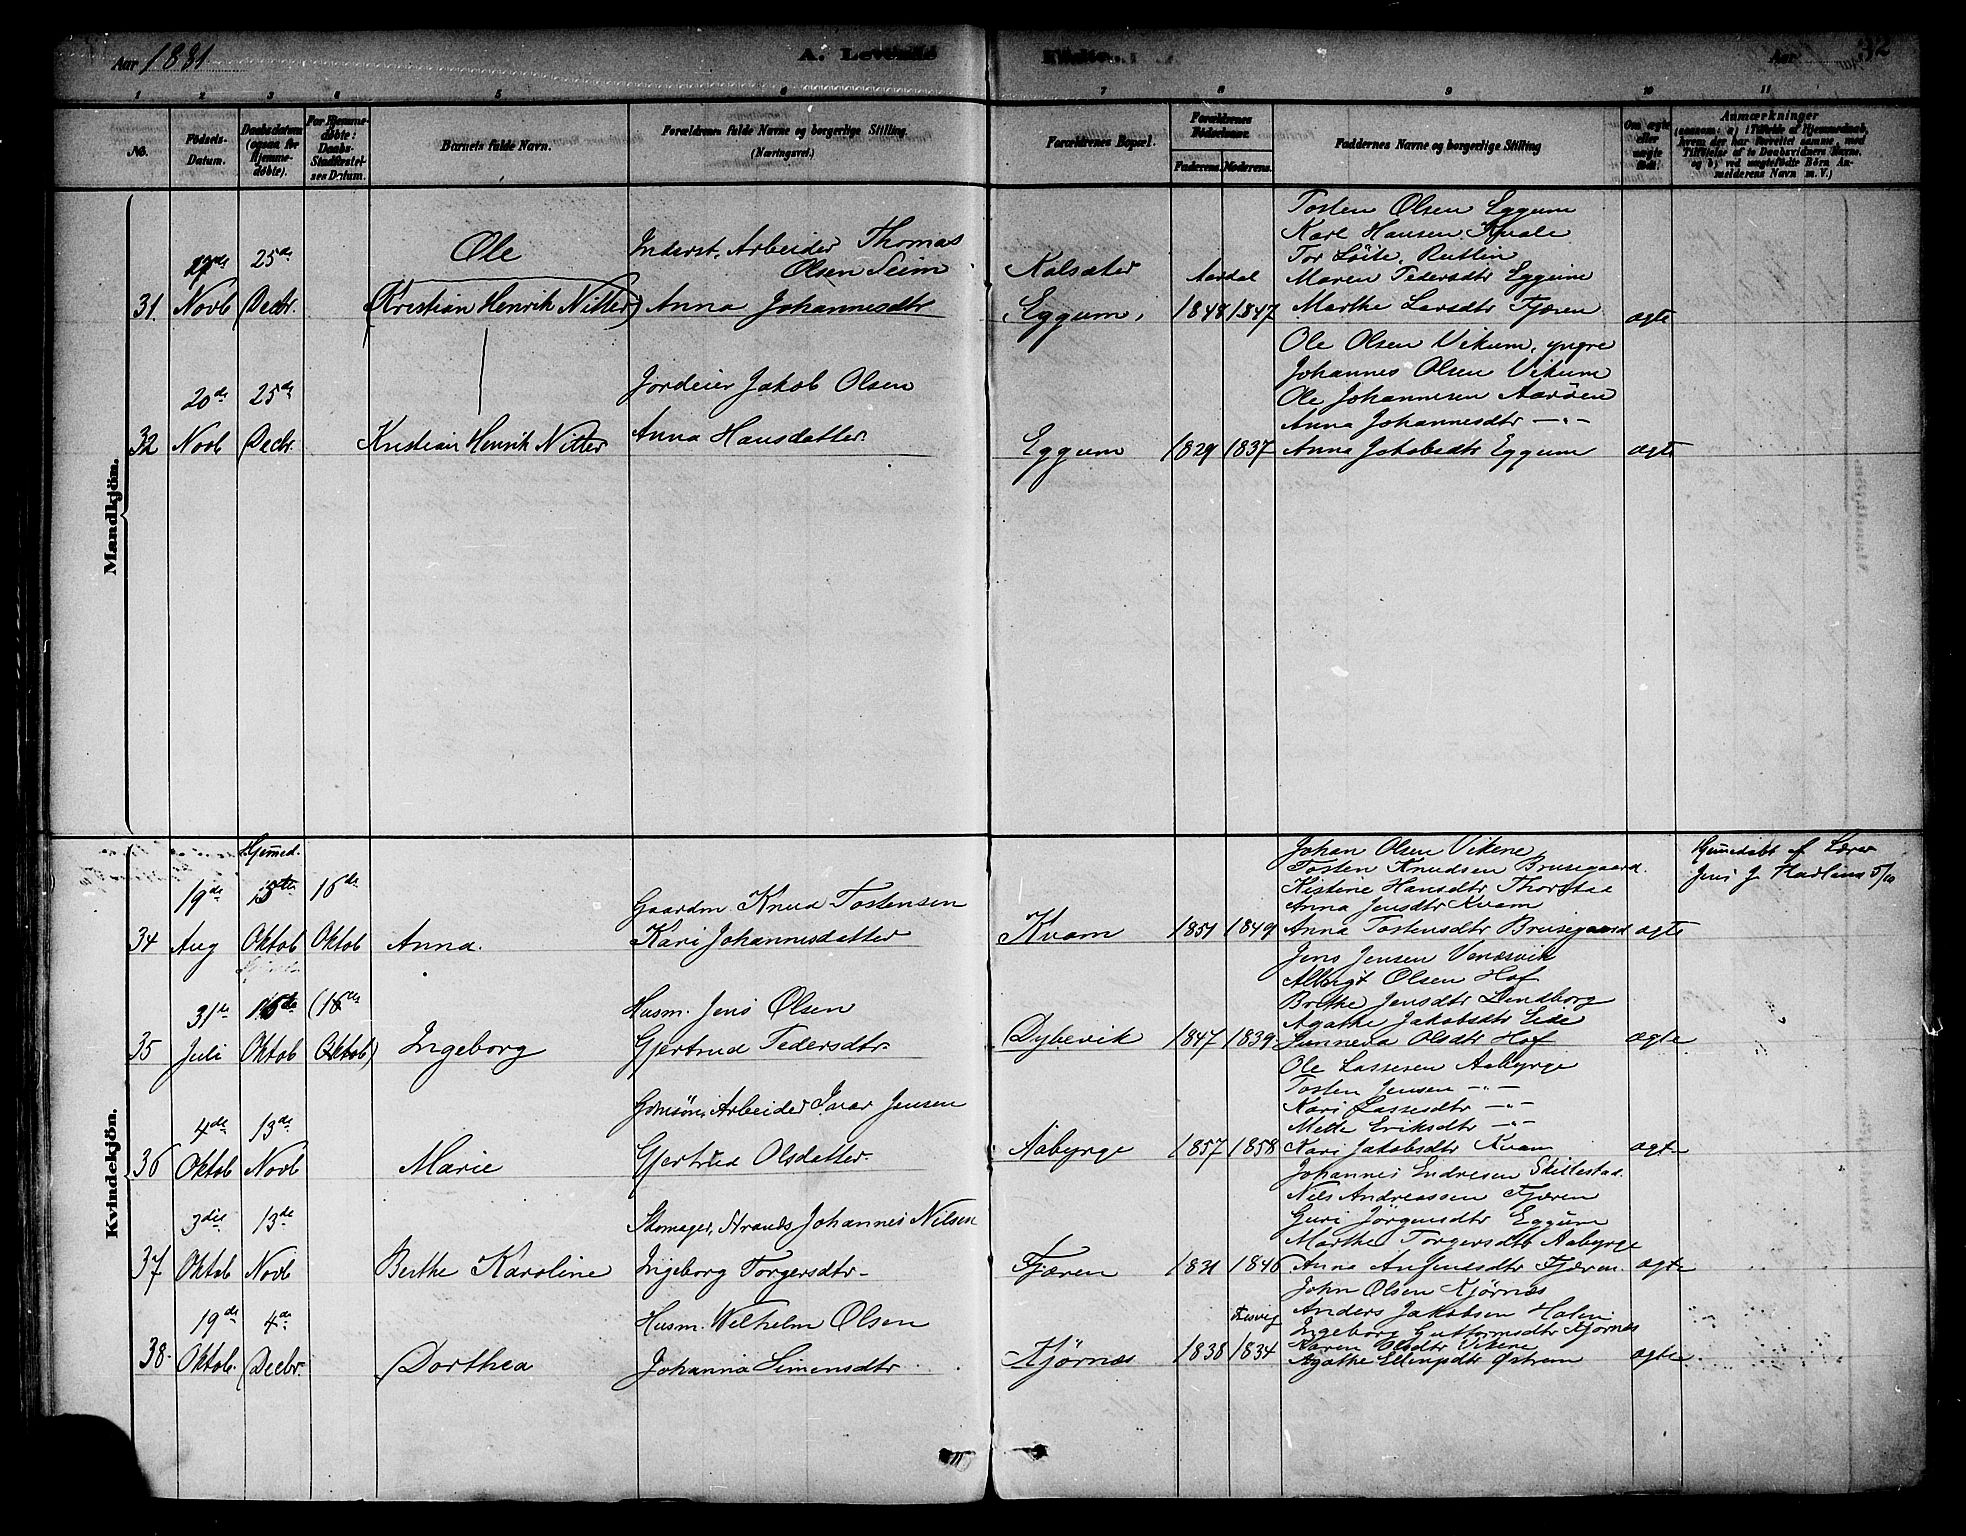 Aar 1881
A. Levende
Fødte.
Aar
32
1 2 3 4 5 6 7 8 9 10 11
No.
Fødsels-Datum.
Daabsdatum (ogsaa for Hjemmedøbte).
For Hjemmedøbte: Daabs-Stadfæstelses Datum.
Barnets fulde Navn.
Forældrenes fulde Navne og borgerlige Stilling. (Næringsvei.)
Forældrenes Bopæl.
Forældrenes Fødselsaar.
Faderens. Moderens.
Faddernes Navne og borgerlige Stilling
Om ægte eller uægte født.
Anmærkninger
Mandkjön.
31
Novb
25de
Decbr.
Ole
(Kristian Henrik Nitter)
Inderst, Arbeider Thomas
Olsen Seim
Anna Johannesdtr
Kalsæter
Eggum,
Aardal
1848 1847
Tosten Olsen Eggum
Karl Hansen Kvale
Tor Löite, Rutlin
Maren Pedersdtr Eggum
Marthe Larsdtr Fjæren
ægte
32
20de
Novb
25de
Decbr.
Kristian Henrik Nitter
Jordeier Jakob Olsen
Anna Hansdatter.
Eggum
1829 1837
Ole Olsen Vikum, yngre
Johannes Olsen Vikum
Ole Johannesen Aaröen
Anna Johannesdtr —"—
Anna Jakobsdtr Eggum
ægte
Kvindekjön.
34
19de
Aug
Hjemmed.
Oktob
16de
Oktob
Anna.
Gaardm. Knud Tostensen
Kari Johannesdatter
Kvam
1851 1849
Johan Olsen Vikene
Tosten Knudsen Brusegaard.
Kistine Hansdtr Thorstad
Anna Jensdtr Kvam
Anna Tostensdtr Brusegaard
ægte
Hjemmedøbt af Lærer
Jens J.
35
31te
Juli
16de
Oktob
(16de
Oktob)
Ingeborg
Husm. Jens Olsen
Gjertrud Pedersdtr.
Dybevik
1847 1839
Jens Jensen Venæsvik
Albrigt Olsen Hof
Brithe Jensdtr Lindborg
Agathe Jakobsdtr Eide
Sunneva Olsdtr Hof
ægte
36
4de
Oktob
13de
Novb
Marie
Gmsøn, Arbeider Ivar Jensen
Gjertrud Olsdatter.
Aabyrge
1857 1858
Ole Lassesen Aabyrge
Tosten Jensen —"—
Kari Lassesdtr —"—
Mette Eriksdtr —"—
Kari Jakobsdtr Kvam
ægte
37
3die
Oktob
13de
Novb
Berthe Karoline
Skomager, Strands. Johannes Nilsen
Ingeborg Torgersdtr.
Fjæren
1831 1846
Johannes Endresen Skillestad.
Nils Andreassen Fjæren
Guri Jörgensdtr Eggum
Marthe Torgersdtr Aabyrge
Anna Anfinsdtr Fjæren.
ægte
38
19de
Oktob.
4de
Decbr.
Dorthea
Husm. Wilhelm Olsen
Johanna Simensdtr
Kjörnæs
1838 1834
John Olsen Kjörnæs
Anders Jakobsen
Ingeborg Guttormsdtr Kjörnæs
Karen Olsdtr Vikene
Agathe Ellingsdtr Østrem
ægte